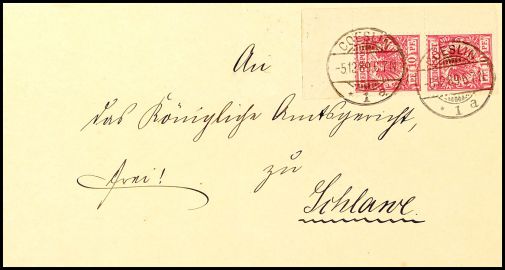 An
das Königliche Amtsgericht,
frei!
zu
Schlawe.
COESLIN
-5.12.89.
* 1 a
10 PF
COESLIN
* 1 a